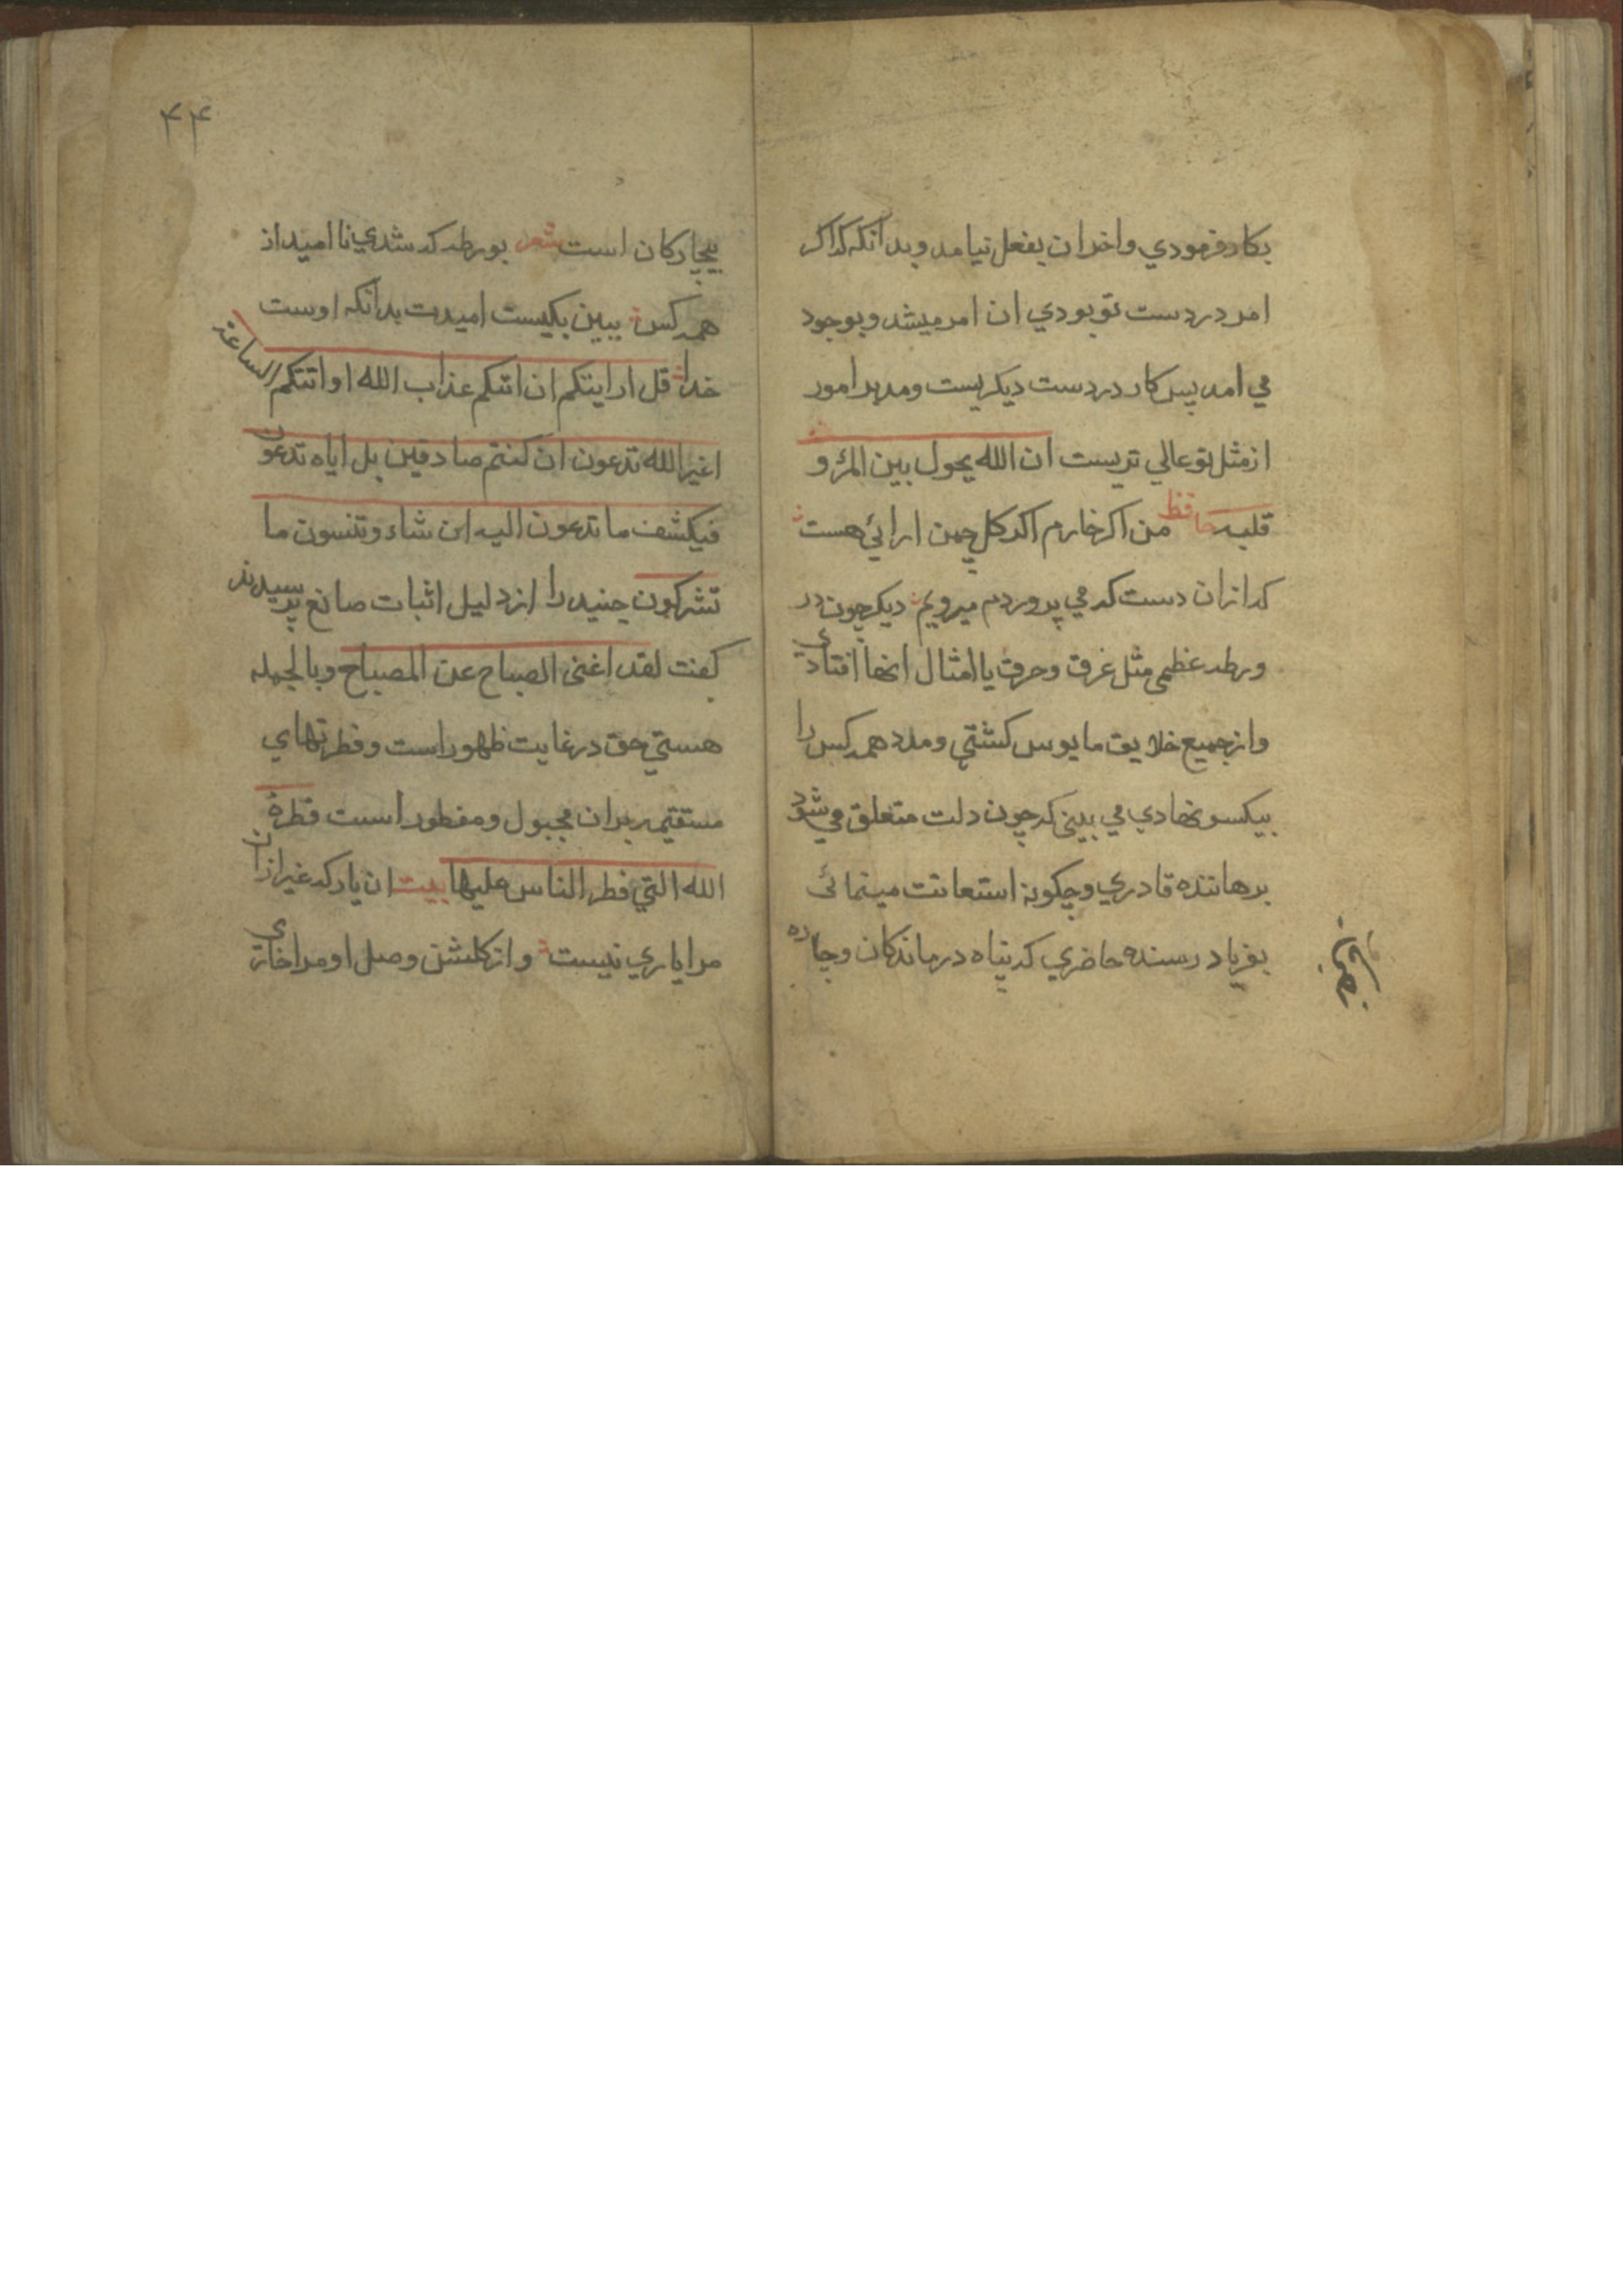 بکار فرمودي واخر ان بفعل نیامد و بدانکه کداکر
امر در دست تو بودي ان امر میشد و بوجود
مي امد پس کار در دست دیکریست و مدبر امور
از مثل تو عالي تریست ان الله یحول بین المرٔ و
قلبه حافظ من اکر خارم اکر کل چمن ارائي هست
که ازان دست که مي پروردم میرویم دیکر چون در
ورطه عظمی مثل غرق و حرق یا امثال انها افتادي
واز جمیع خلایق مایوس کشتي و مدد همه کس را
بیکسو نهادي مي بینی که چون دلت متعلق مي شود
برهاننده قادري و چکونه استعانت مینمائی
بفریاد رسنده حاضري که پناه درماندکان وچاره
بیچارکان است شعر بورطه که شدي نا امید از
همه کس ببین بکیست امیدت بدانکه اوست
خدا قل ارایتکم ان اتیکم عذاب الله او اتتکم الساعة
اغیر الله تدعون ان کنتم صادقین بل ایاه تدعون
فیکشف ما تدعون الیه ان شاء وتنسون ما
تشرکون جنید را از دلیل اثبات صانع پرسیدند
کفت لقد اغنی الصباح عن المصباح وبالجمله
هستي حق در غایت ظهور است و فطرتهاي
مستقیمه بران مجبول ومفطور است فطرة
الله التي فطر الناس علیها بیت ان یار که غیر ازان
مرا یاري نیست واز کلشن وصل او مرا خاری
۴۴